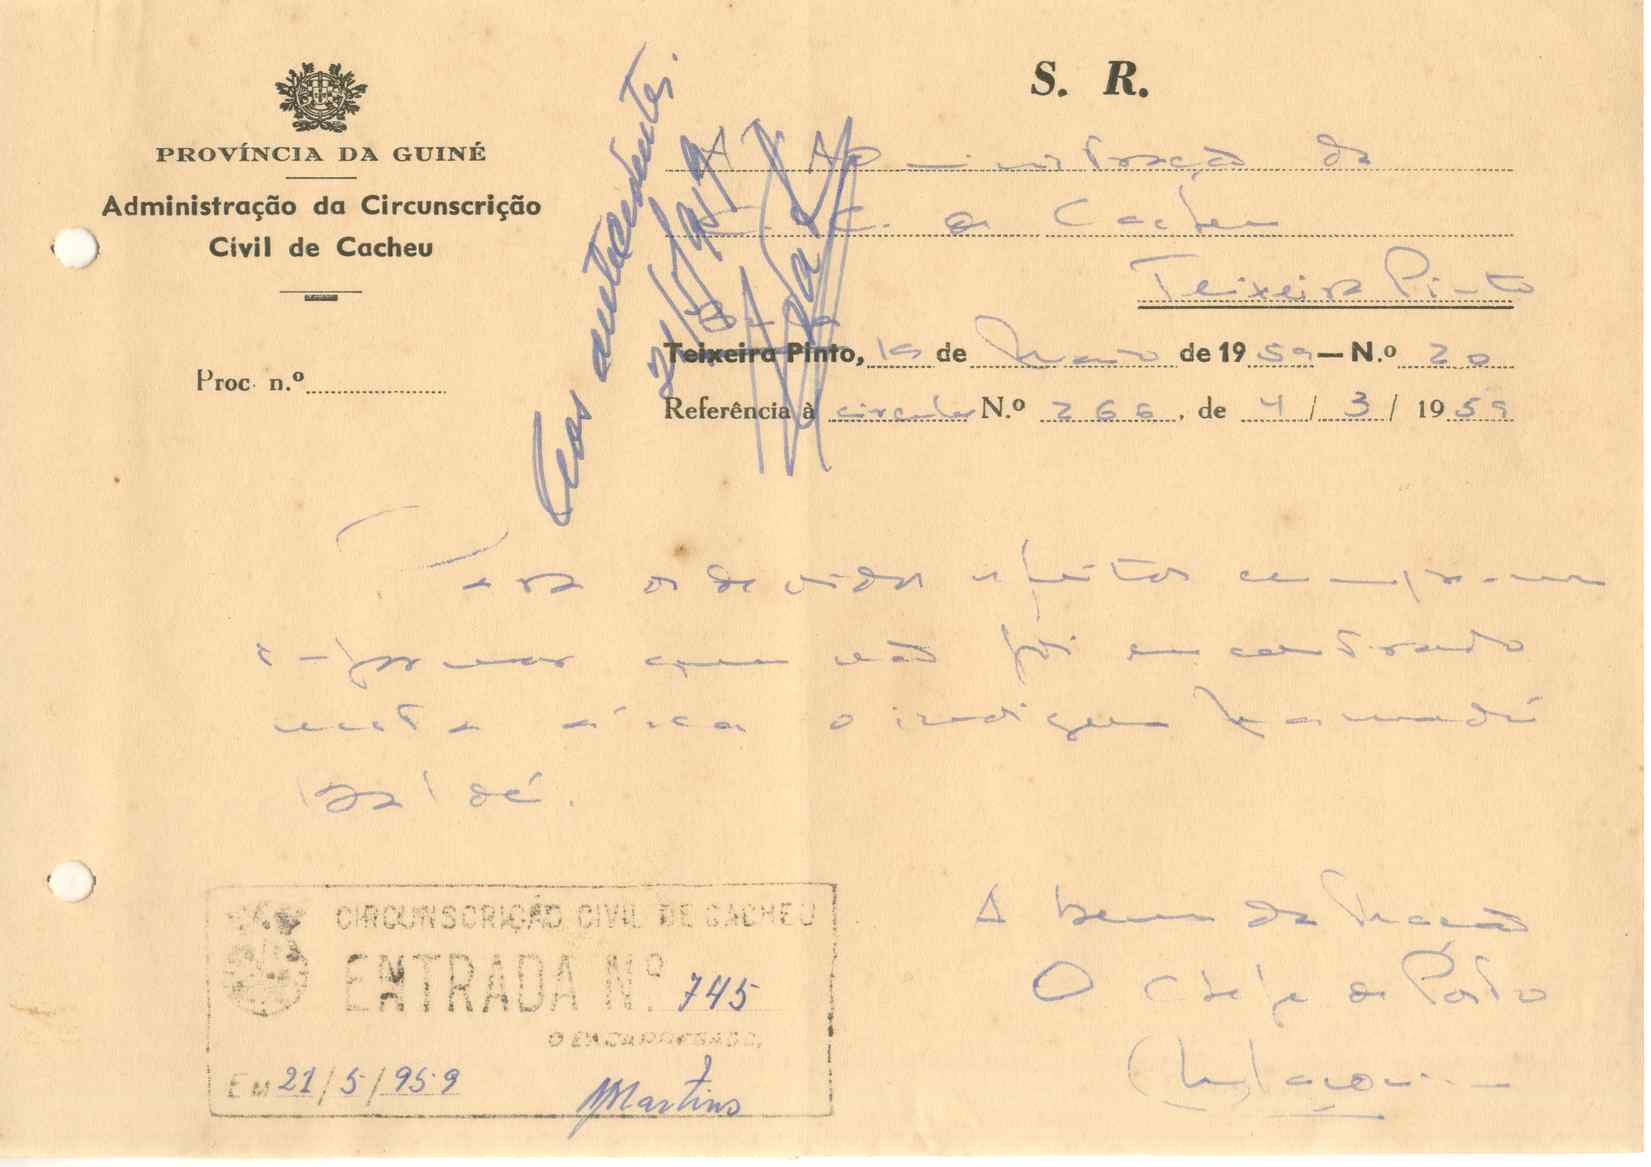 PROVÍNCIA DA GUINÉ
Administração da Circunscrição
Civil de Cacheu
Proc. n.º
S. R.
A Administração da
C. C. de Cacheu
Teixeira Pinto
Teixeira Pinto, 19 de Maio de 1959 — N.º 20
Referência à circular N.º 266, de 4/3/1959
Aos antecedentes.
21/5/959
Para os devidos efeitos cumpre-me
informar que não foi encontrado
nesta área o indígena Mamadú
Baldé.
A bem da Nação
O Chefe de Posto
CIRCUNSCRIÇÃO CIVIL DE CACHEU
ENTRADA N.º 745
O ENCARREGADO,
EM 21/5/959
Martins